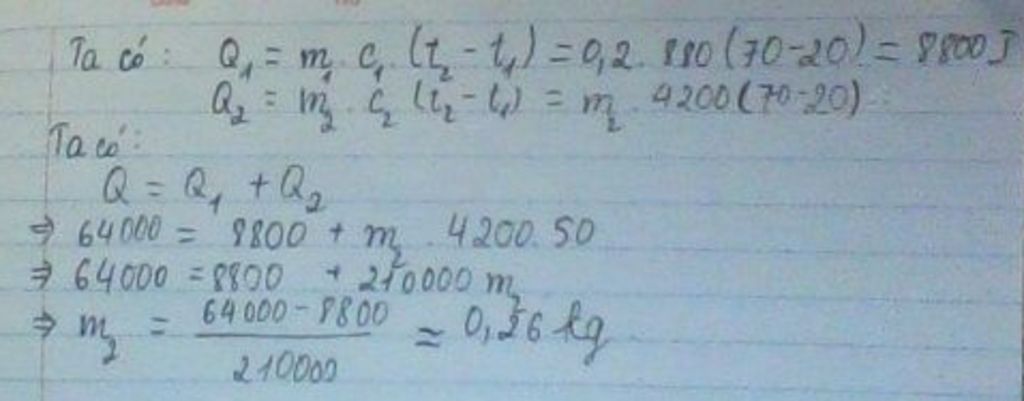 Ta có: Q₁ = m₁. c₁. (t₂ - t₁) = 0,2. 880 (70-20) = 8800 J
Q₂ = m₂. c₂ (t₂ - t₁) = m₂. 4200 (70-20)
Ta có:
Q = Q₁ + Q₂
⇒ 64000 = 8800 + m₂. 4200. 50
⇒ 64000 = 8800 + 210000 m₂
⇒ m₂ = (64000 - 8800) / 210000 ≈ 0,26 kg